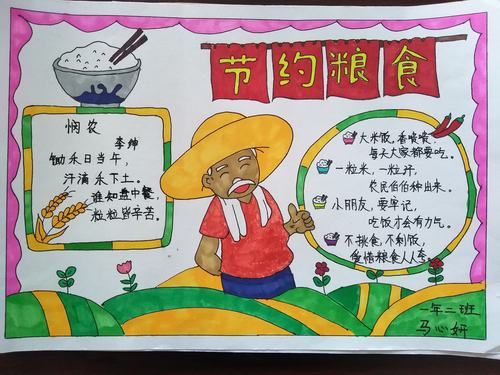 节约粮食
悯农
李绅
锄禾日当午，
汗滴禾下土。
谁知盘中餐，
粒粒皆辛苦。
大米饭，香喷喷，
每天大家都要吃。
一粒米，一粒汗，
农民伯伯种出来。
小朋友，要牢记，
吃饭才会有力气。
不挑食，不剩饭，
爱惜粮食人人夸。
一年二班
马心妍